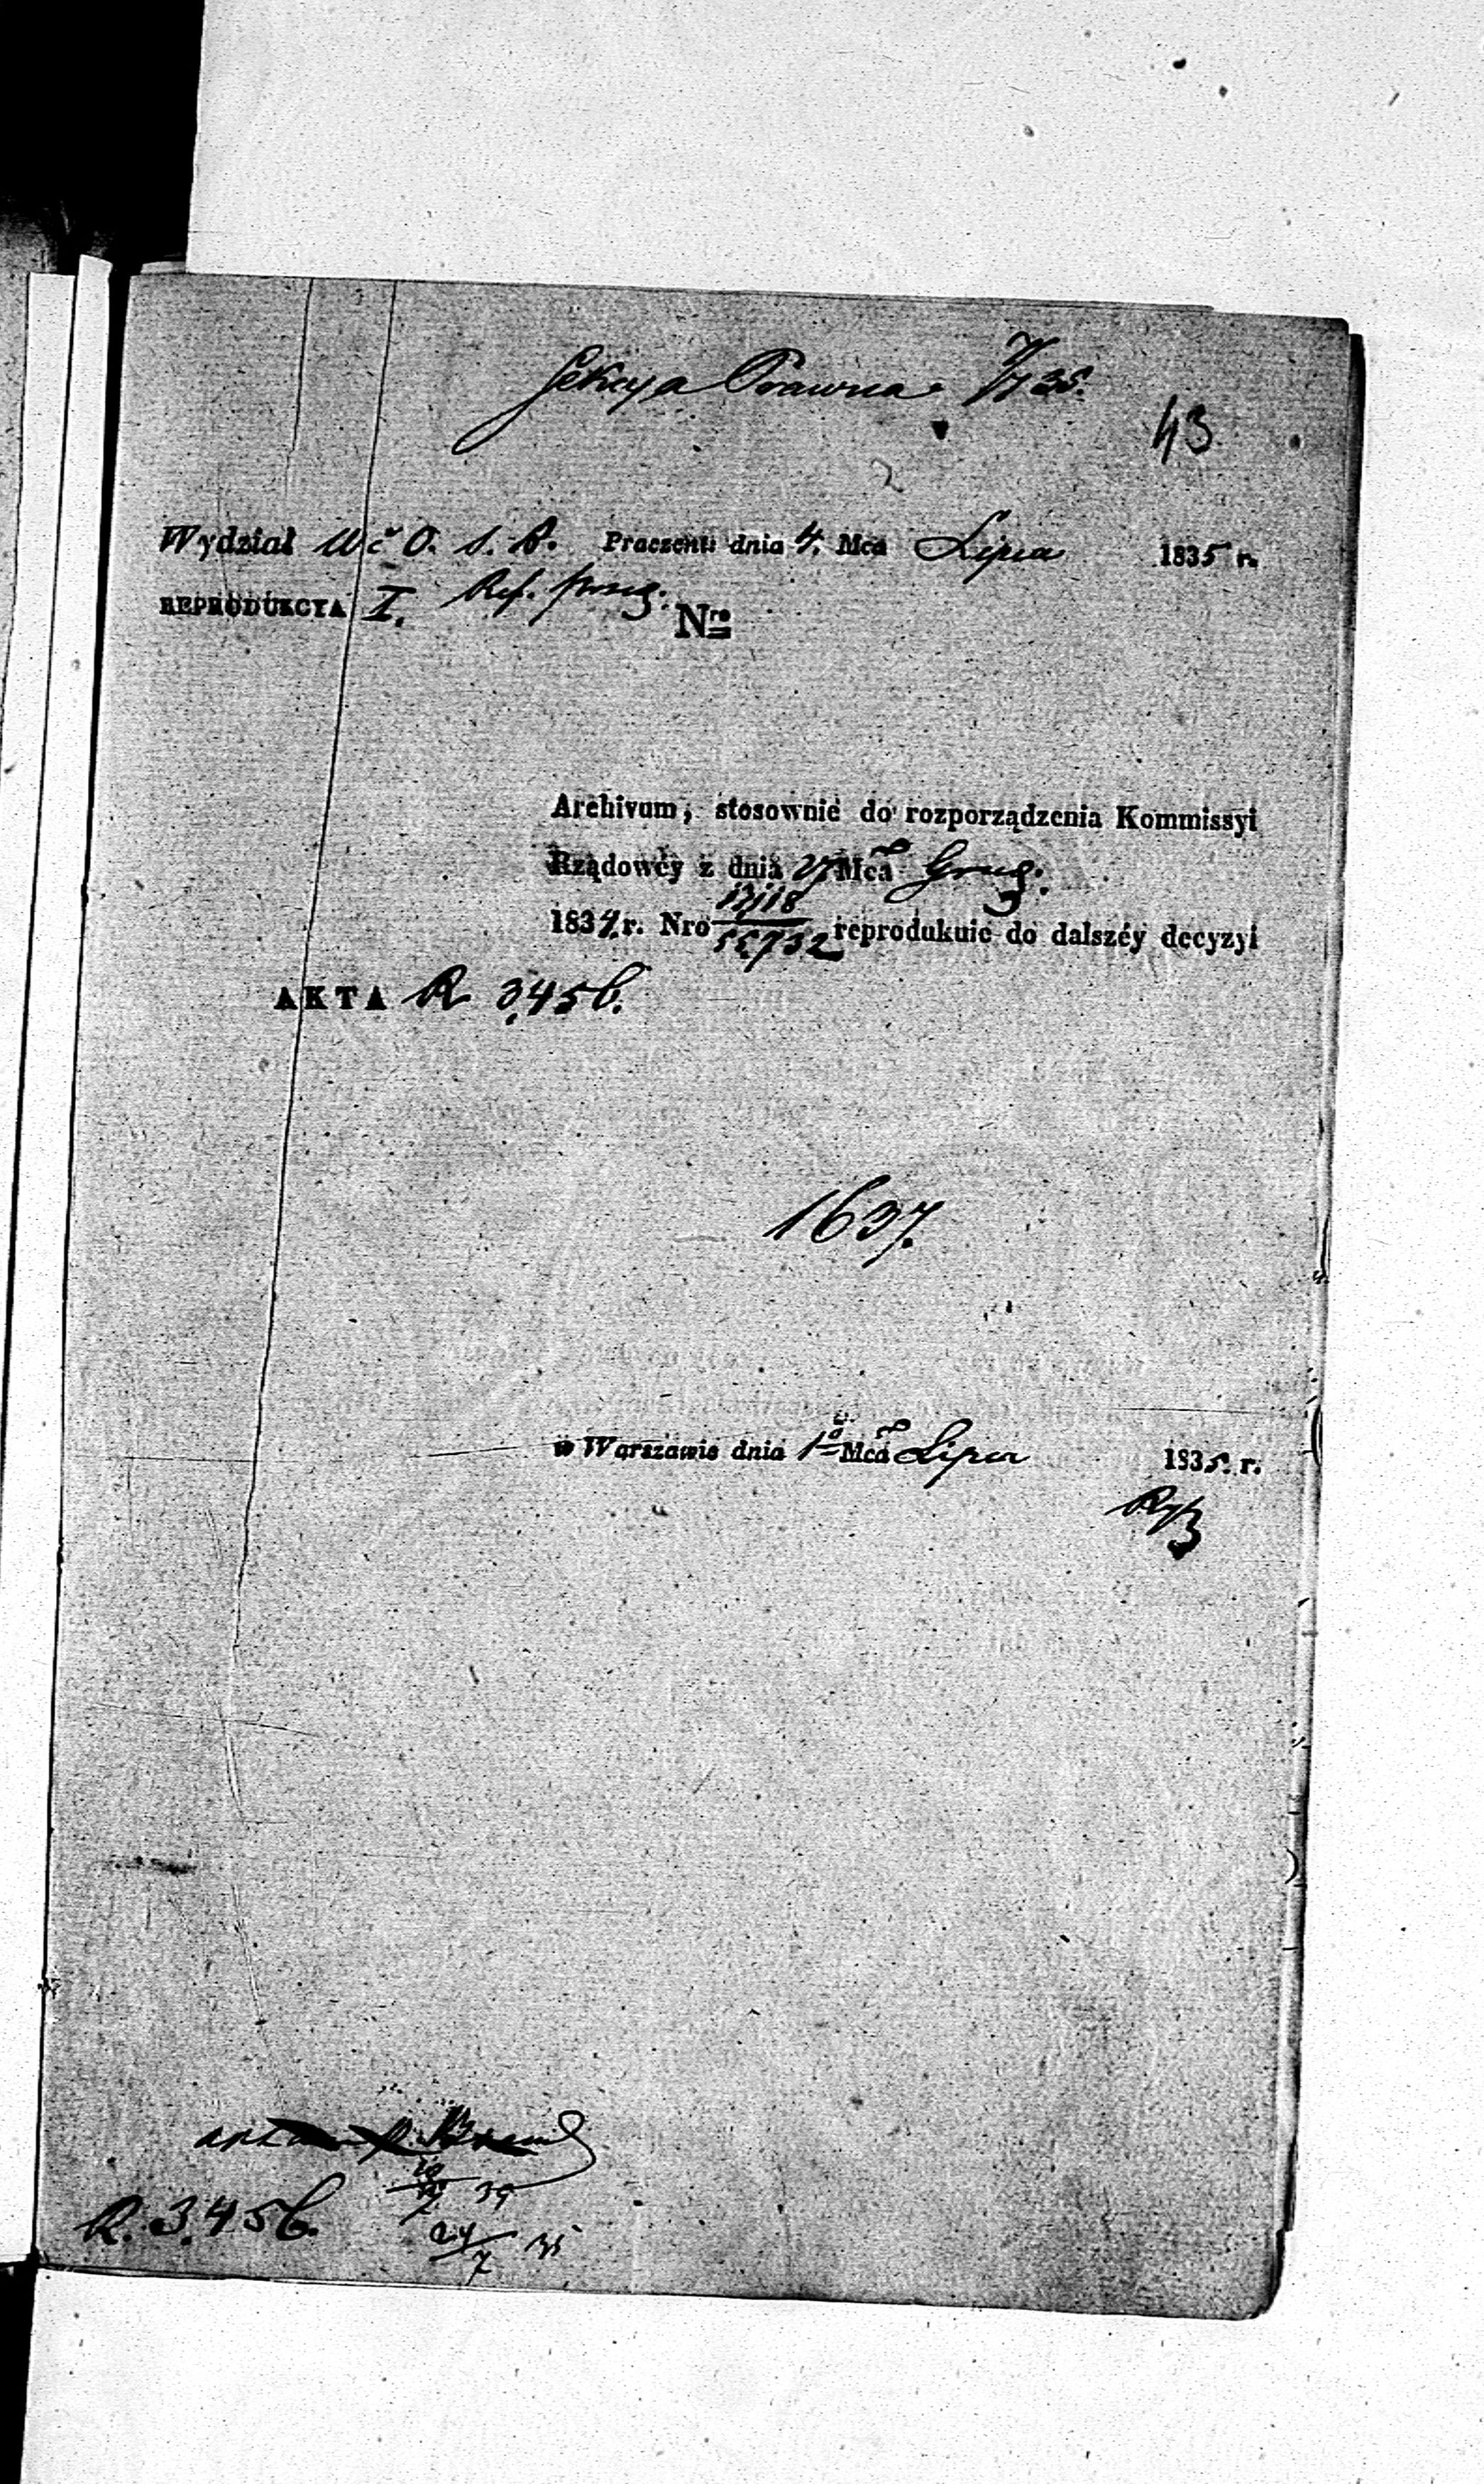 Sekcya Prawna 7/7 35.
43
Wydział O. S. R. Praezent: dnia 4. Mca Lipca 1835 r.
REPRODUKCYA I. Ref. Nro
Archivum, stosownie do rozporządzenia Kommissyi
Rządowéy z dnia 27 Mca Grud:
1834. r. Nro reprodukuie do dalszéy decyzyi
AKTA R 3,456.
1637.
w Warszawie dnia 1 Mca Lipca 1835. r.
R. 3.456.
24/7 35